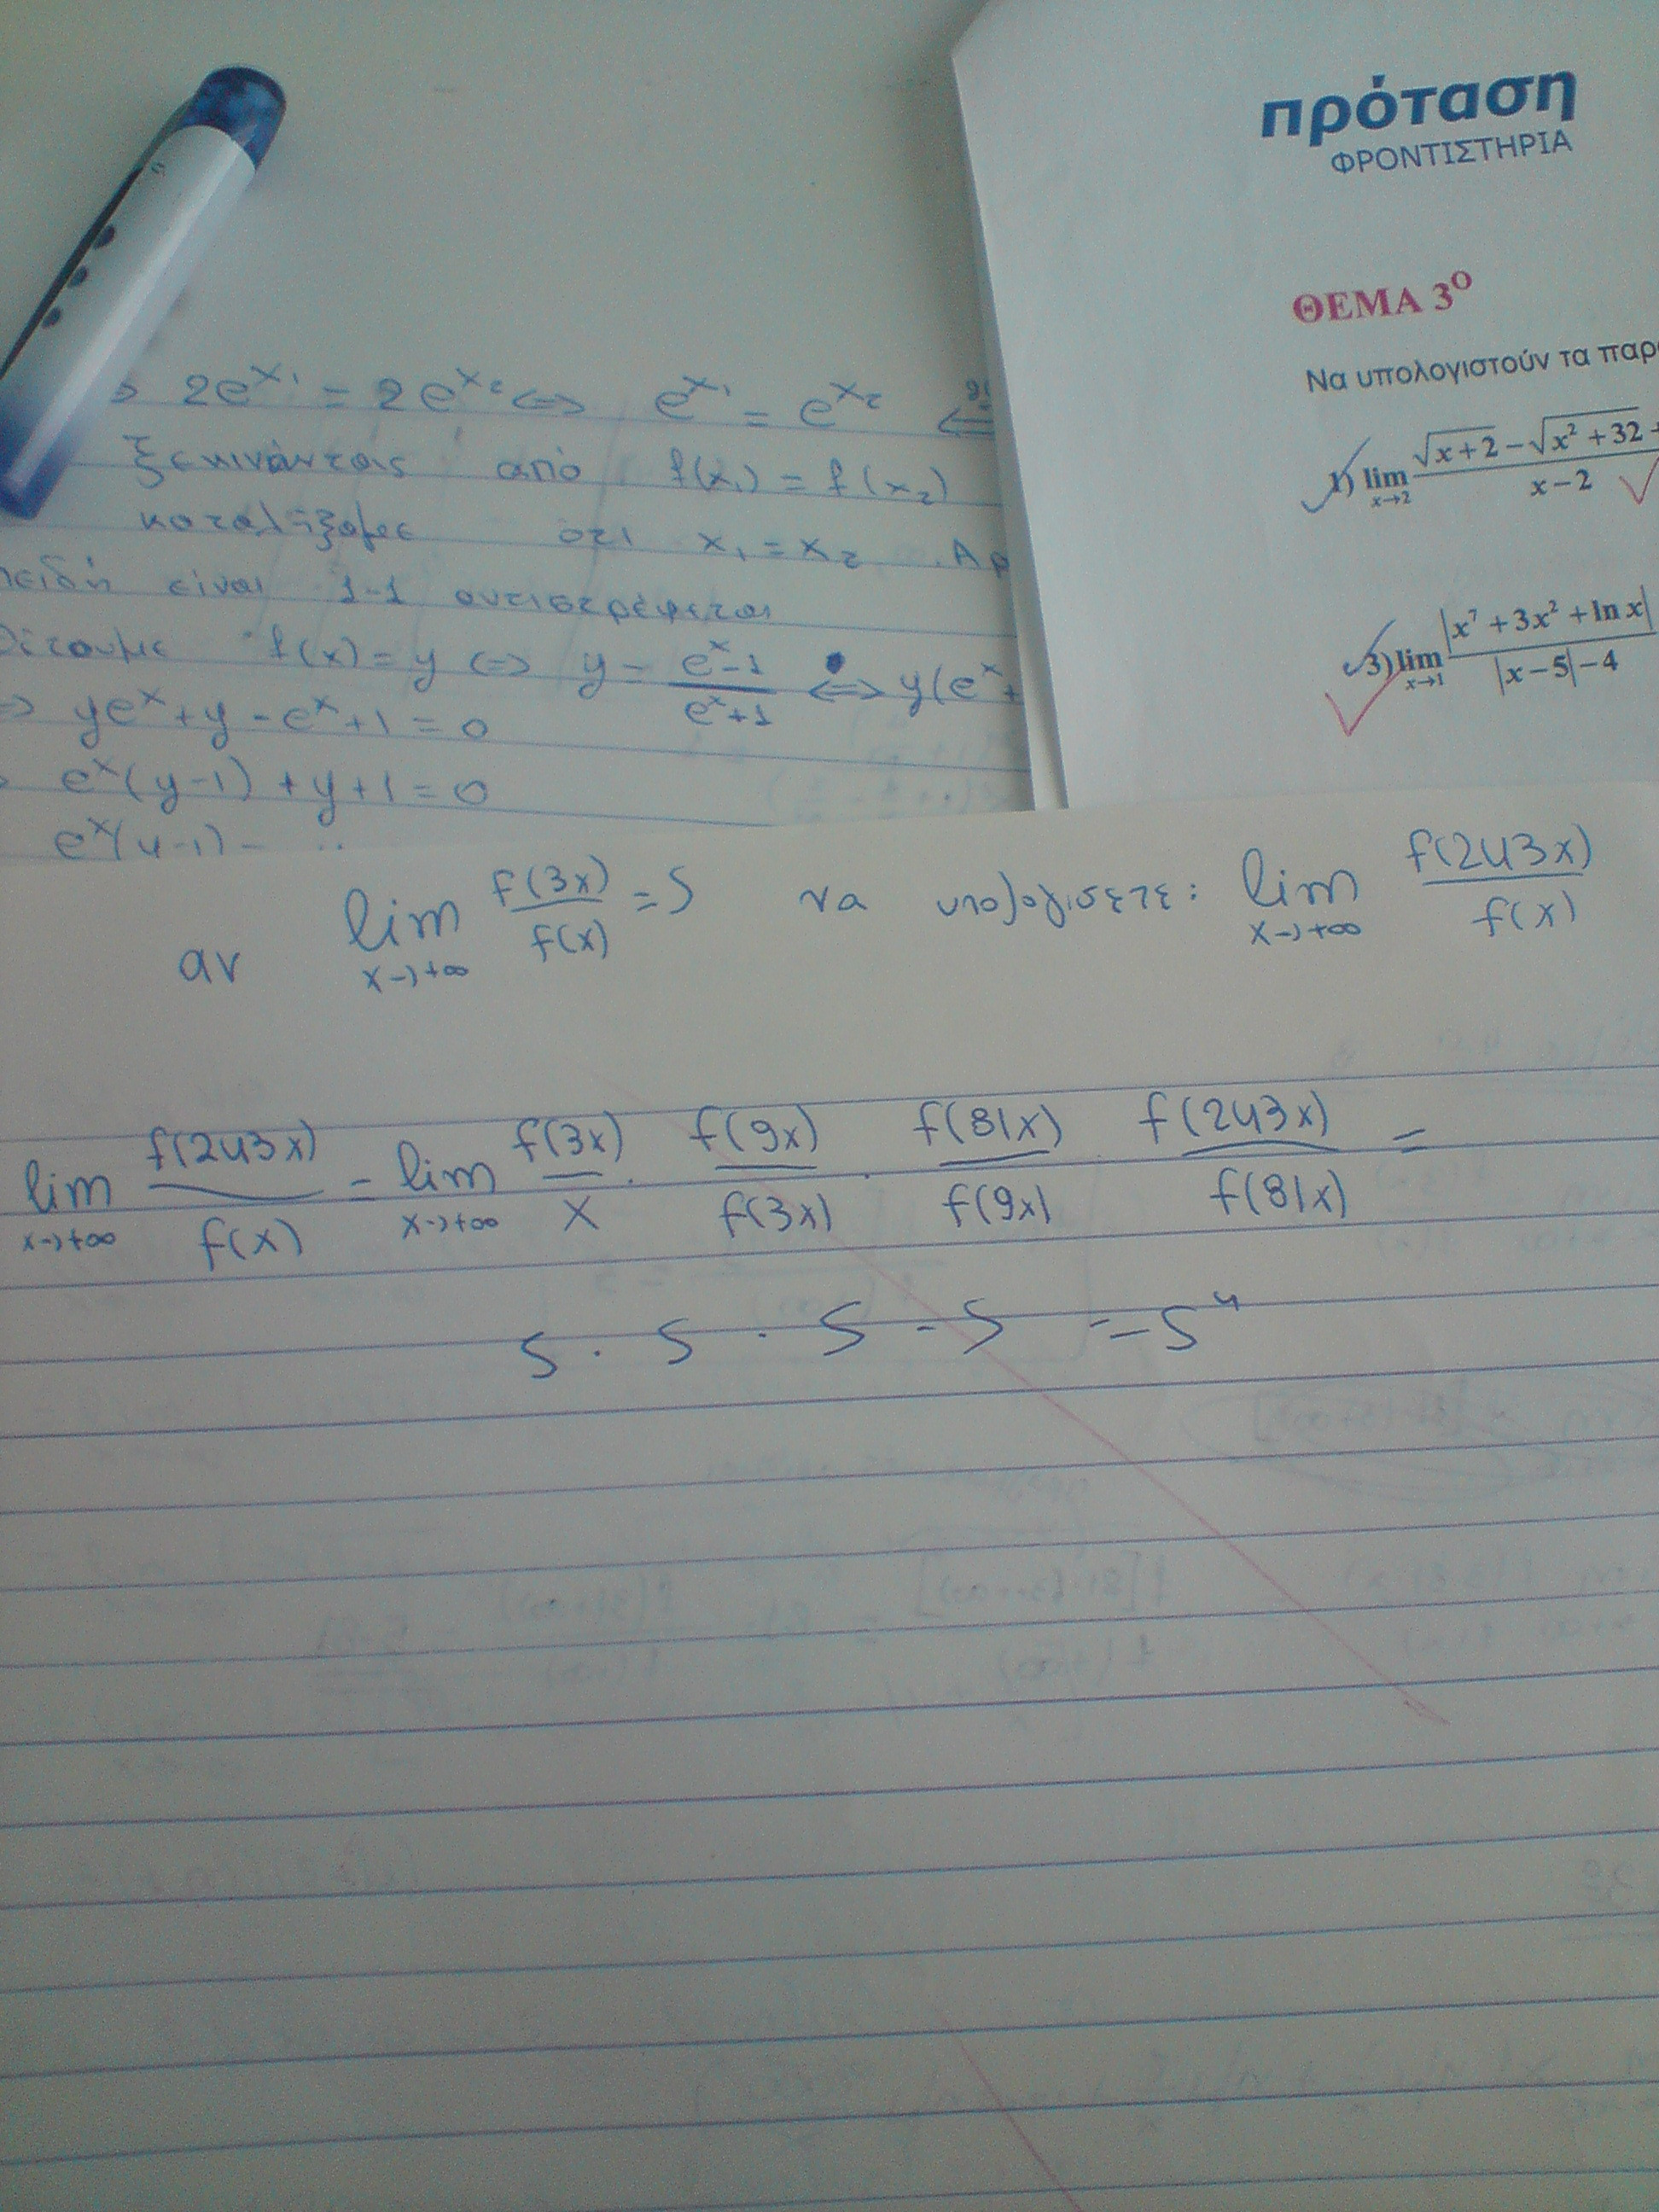 πρόταση
ΦΡΟΝΤΙΣΤΗΡΙΑ
ΘΕΜΑ 3Ο
Να υπολογιστούν τα παρ
1) lim x→2 √x+2 − √x² + 32 + / x − 2
3) lim x→1 |x⁷ + 3x² + ln x| / |x − 5| − 4
2e^x₁ = 2e^x₂ <=> e^x₁ = e^x₂ <=
ξεκινώντας από f(x₁) = f(x₂)
καταλήξαμε οτι x₁ = x₂ . Αρ
πειδή είναι 1-1 αντιστρέφεται
θέτουμε f(x) = y <=> y = e^x-1 / e^x+1 <=> y(e^x+
=> ye^x + y - e^x + 1 = 0
e^x(y-1) + y + 1 = 0
e^x(y-1) =
αν lim x→+∞ f(3x) / f(x) = 5 να υπολογισετε: lim x→+∞ f(243x) / f(x)
lim x→+∞ f(243x) / f(x) = lim x→+∞ f(3x) / x · f(9x) / f(3x) · f(81x) / f(9x) · f(243x) / f(81x) =
5 · 5 · 5 · 5 = 5⁴